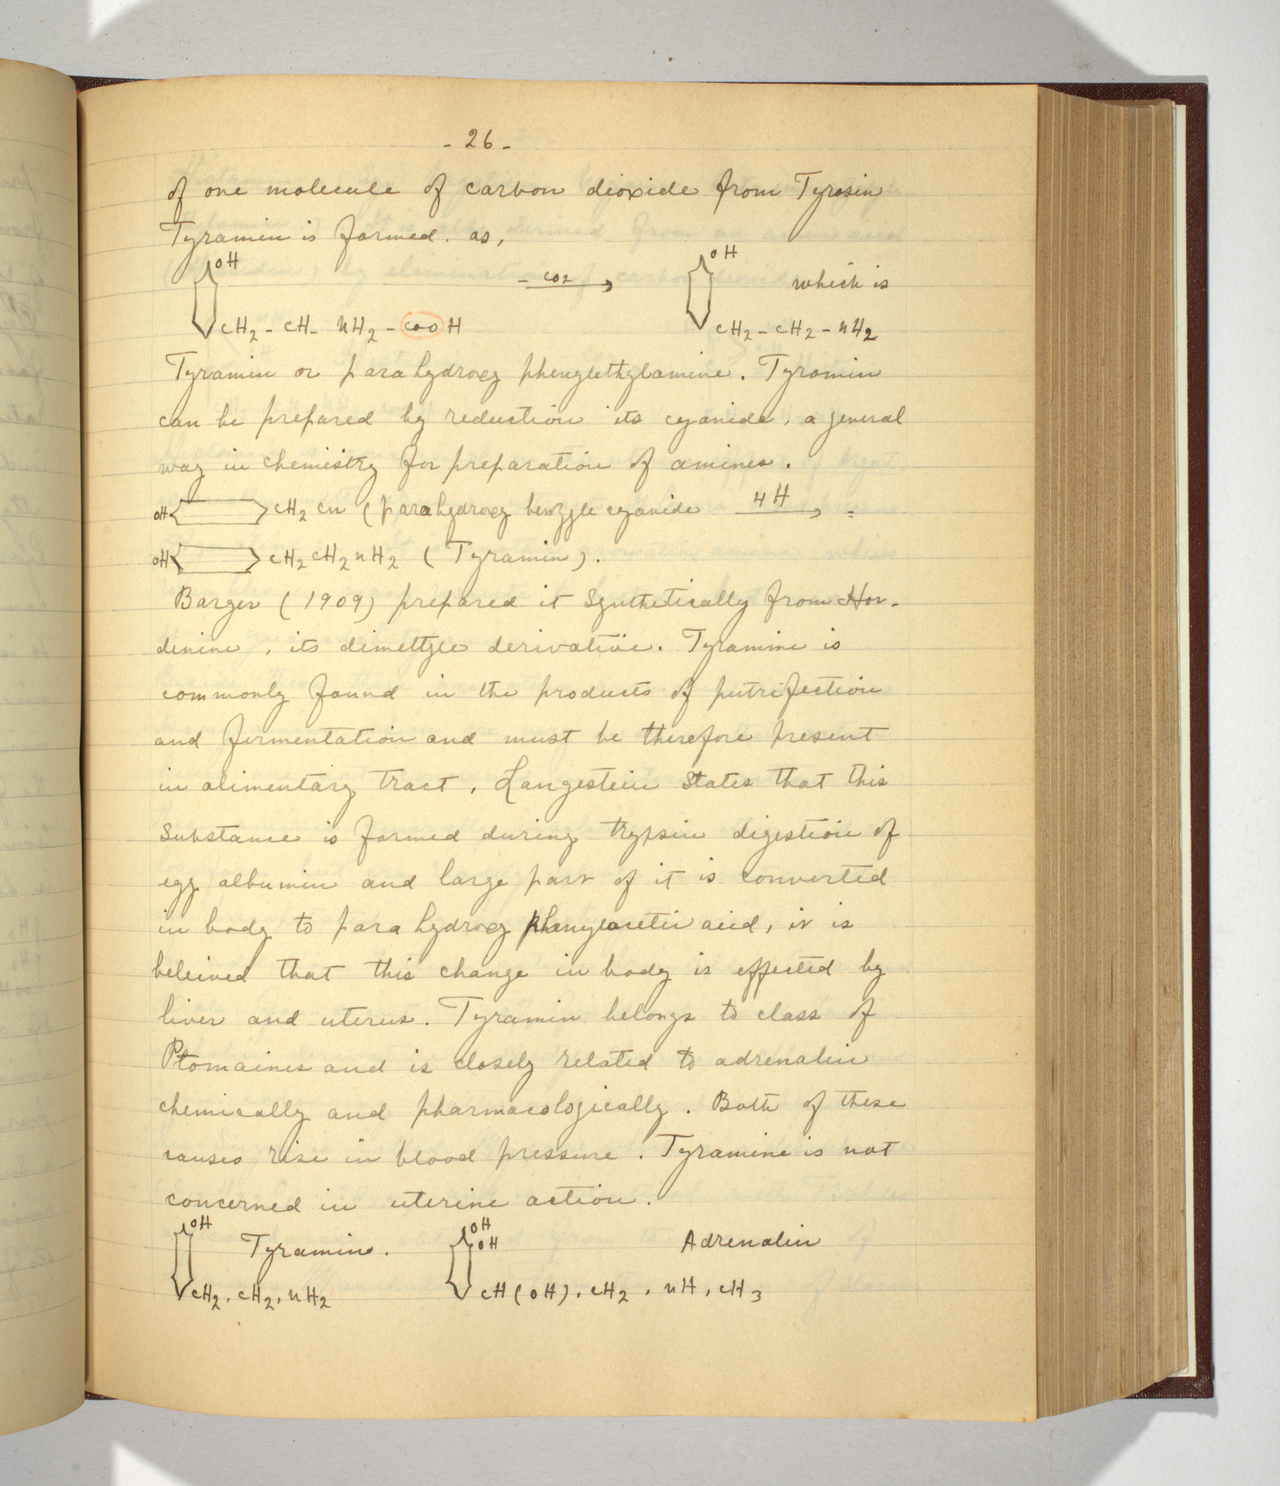 - 26 -
of one molecule of carbon dioxide from Tyrosin
Tyramin is formed. as,
OH - CO2 → OH which is
CH2 - CH - NH2 - COOH CH2 - CH2 - NH2
Tyramin or para hydroxy phenylethylamine. Tyramin
can be prepared by reduction its cyanide, a general
way in chemistry for preparation of amines.
OH CH2 CN (para hydroxy benzyle cyanide 4H → =
OH CH2 CH2 NH2 (Tyramin).
Barger (1909) prepared it synthetically from Hor-
denine, its dimethyle derivative. Tyramine is
commonly found in the products of putrifection
and fermentation and must be therefore present
in alimentary tract, Langestein states that this
substance is formed during trypsin digestion of
egg albumin and large part of it is converted
in body to para hydroxy phenylacetic acid, it is
beleived that this change in body is effected by
liver and uterus. Tyramin belongs to class of
Ptomaines and is closely related to adrenalin
chemically and pharmacologically. Both of these
causes rise in blood pressure. Tyramine is not
concerned in uterine action.
OH Tyramine. OH OH Adrenalin
CH2. CH2. NH2 CH(OH). CH2. NH. CH3